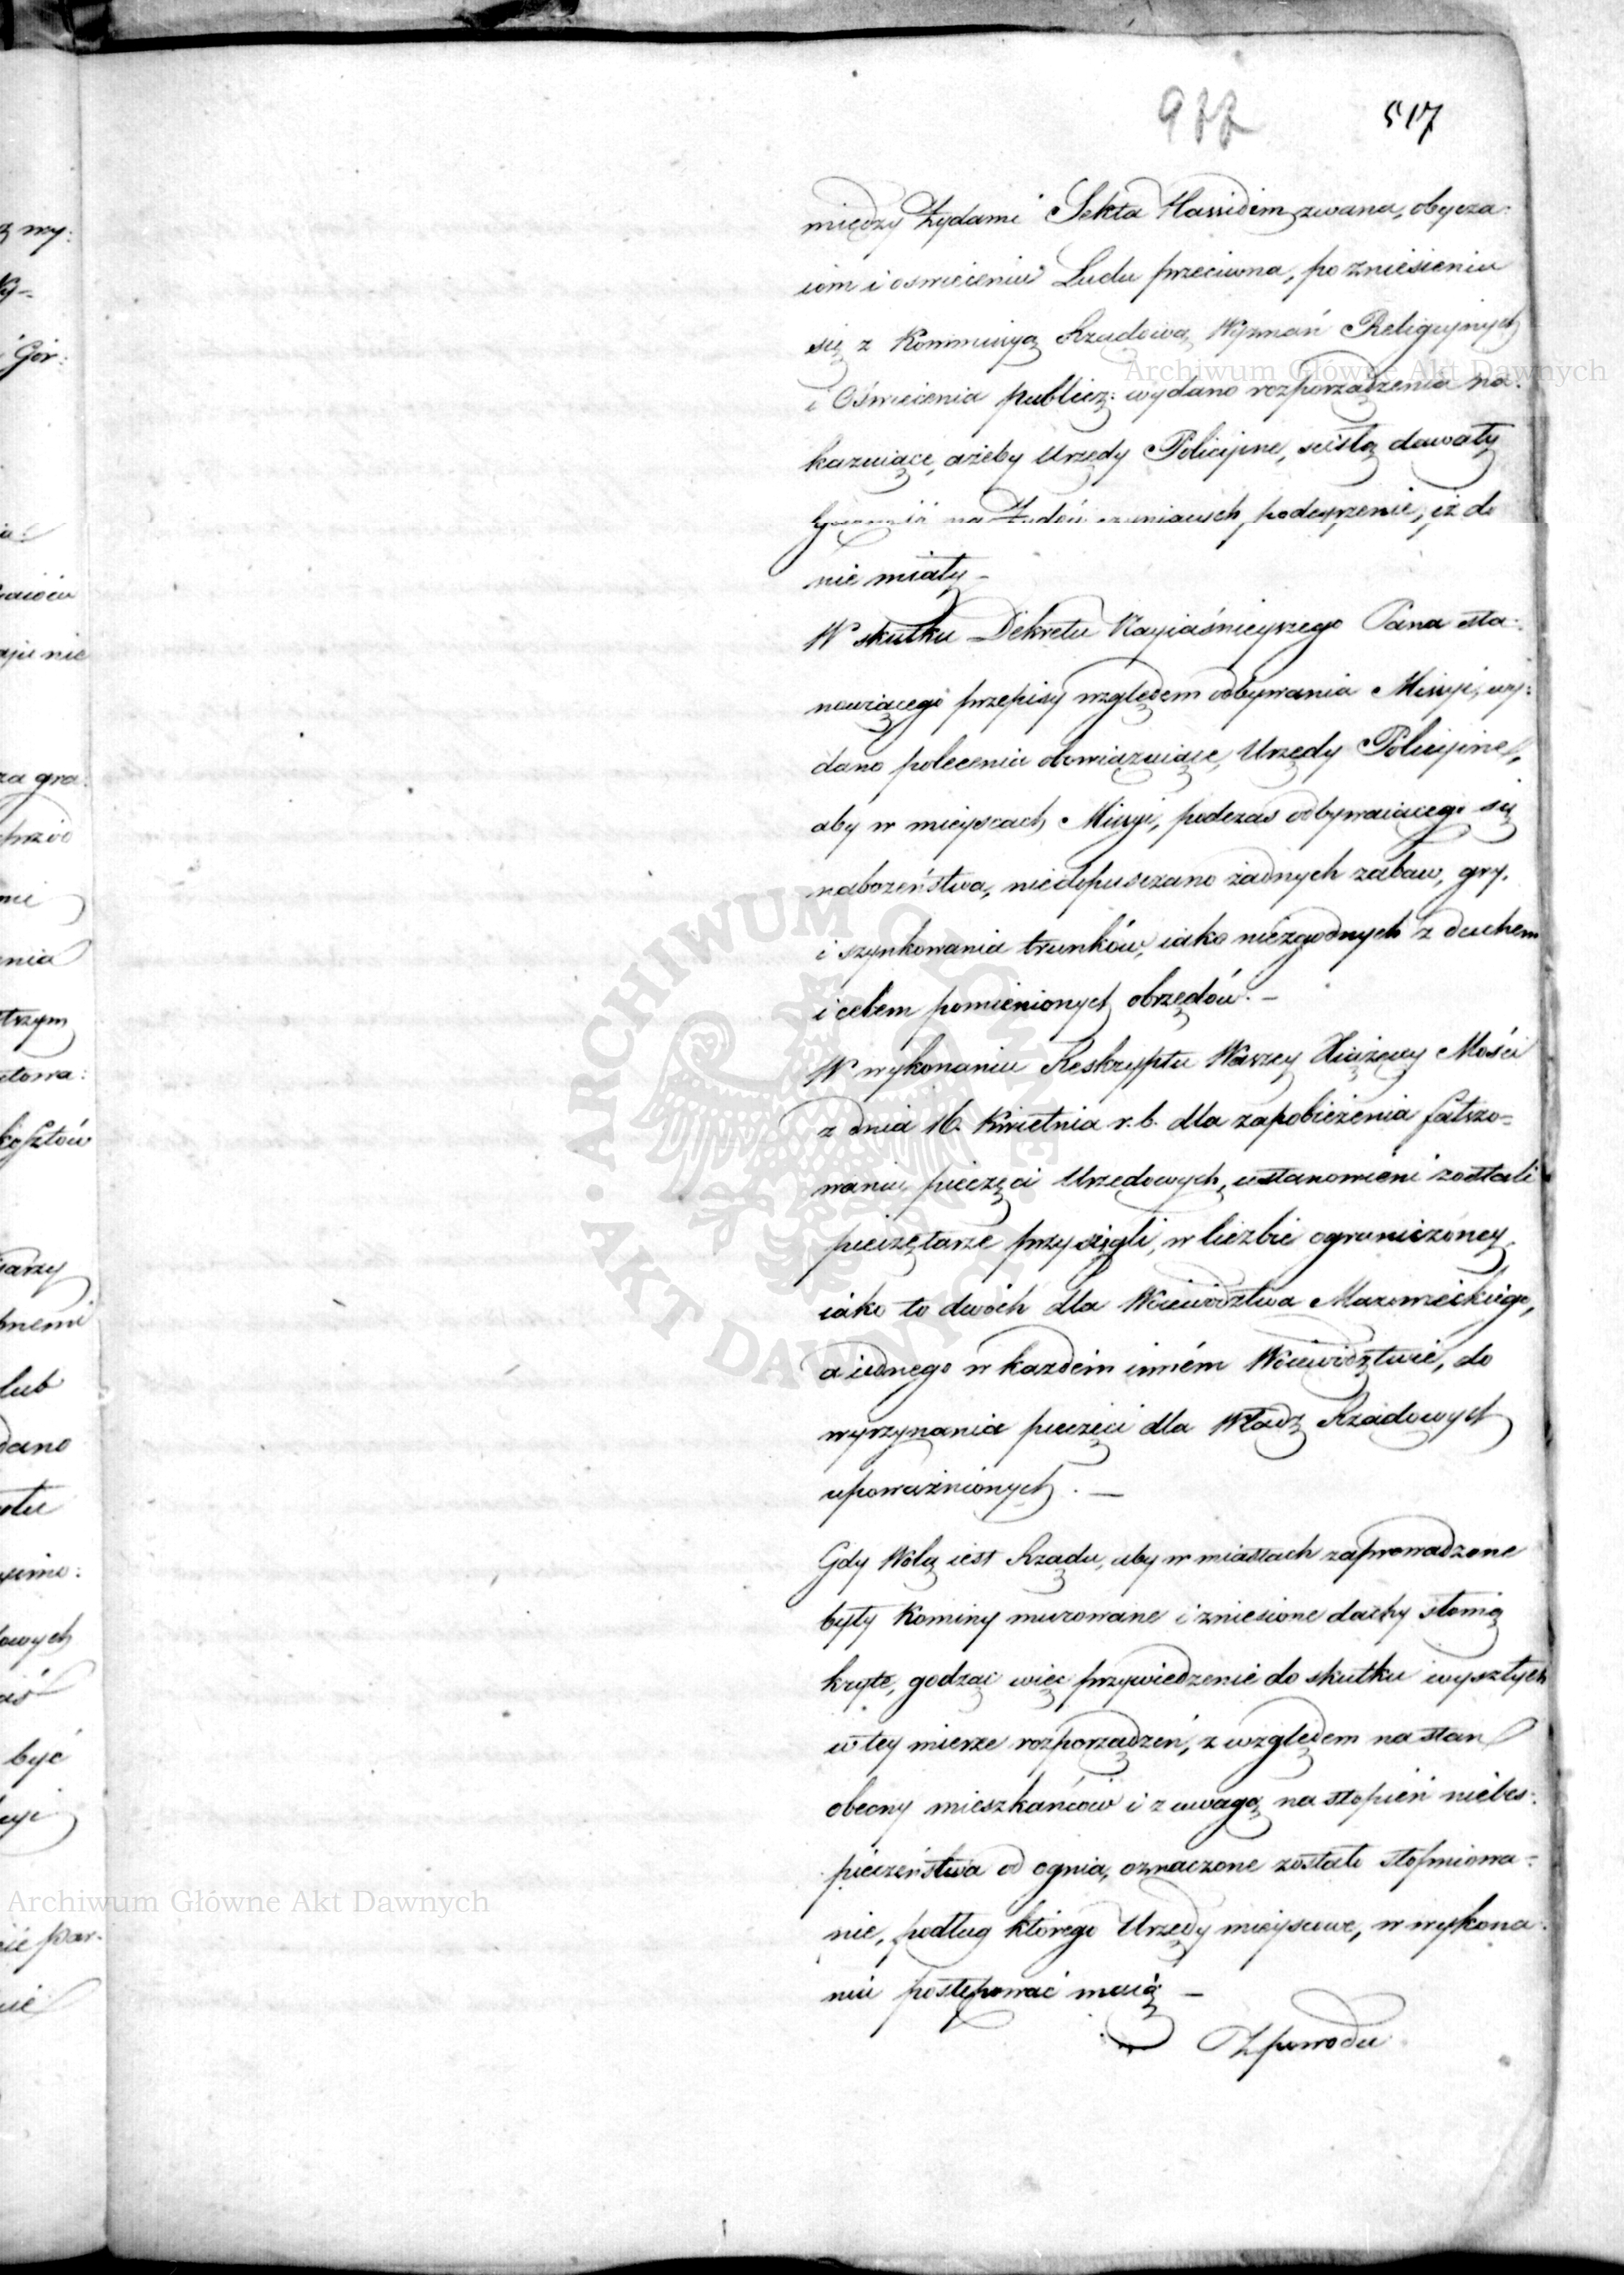 977 517
między Żydami Sekta Hassidim zwana, obycza:
iom i oswieceniu Ludu przeciwna, po zniesieniu
się z Kommissyą Rządową Wyznań Religiynych
i Oświecenia publicz: wydano rozporządzenia na:
kazuiące, ażeby Urzędy Policyjne, scisłą dawały
na Żydów czyniących podeyrzenie, iż do
nie miały –
W skutku Dekretu Nayiaśnieyszego Pana sta:
nowiącego przepisy względem odbywania Missyi, wy:
dano polecenia obowiązuiące, Urzędy Policyine,
aby w mieyscach Missyi, podczas odbywaiącego się
nabożeństwa, niedopuszczano żadnych zabaw, gry,
i szynkowania trunków, iako niezgodnych z duchem
i celem pomienionych obrzędów. –
W wykonaniu Reskryptu Waszey Xiążęcey Mości
z dnia 16. Kwietnia r. b. dla zapobieżenia fałszo=
waniu pieczęci Urzędowych, ustanowieni zostali
pieczętarze przysięgli, w liczbie ograniczoney,
iako to dwóch dla Woiewództwa Mazowieckiego,
a iednego w każdém inném Woiewództwie, do
wyrzynania pieczęci dla Władz Rządowych
upoważnionych. —
Gdy Wolą iest Rządu, aby w miastach zaprowadzone
były Kominy murowane i zniesione dachy słomą
kryte, godząc więc przywiedzenie do skutku wyszłych
w tey mierze rozporządzeń, z względem na stan
obecny mieszkańców i z uwagą na stopień niebes:
pieczeństwa od ognia, oznaczone zostało stopniowa=
nie, podług którego Urzędy mieyscowe, w wykona:
niu postępować maią –
Z powodu
Archiwum Główne Akt Dawnych
Archiwum Główne Akt Dawnych
ARCHIWUM GŁÓWNE AKT DAWNYCH